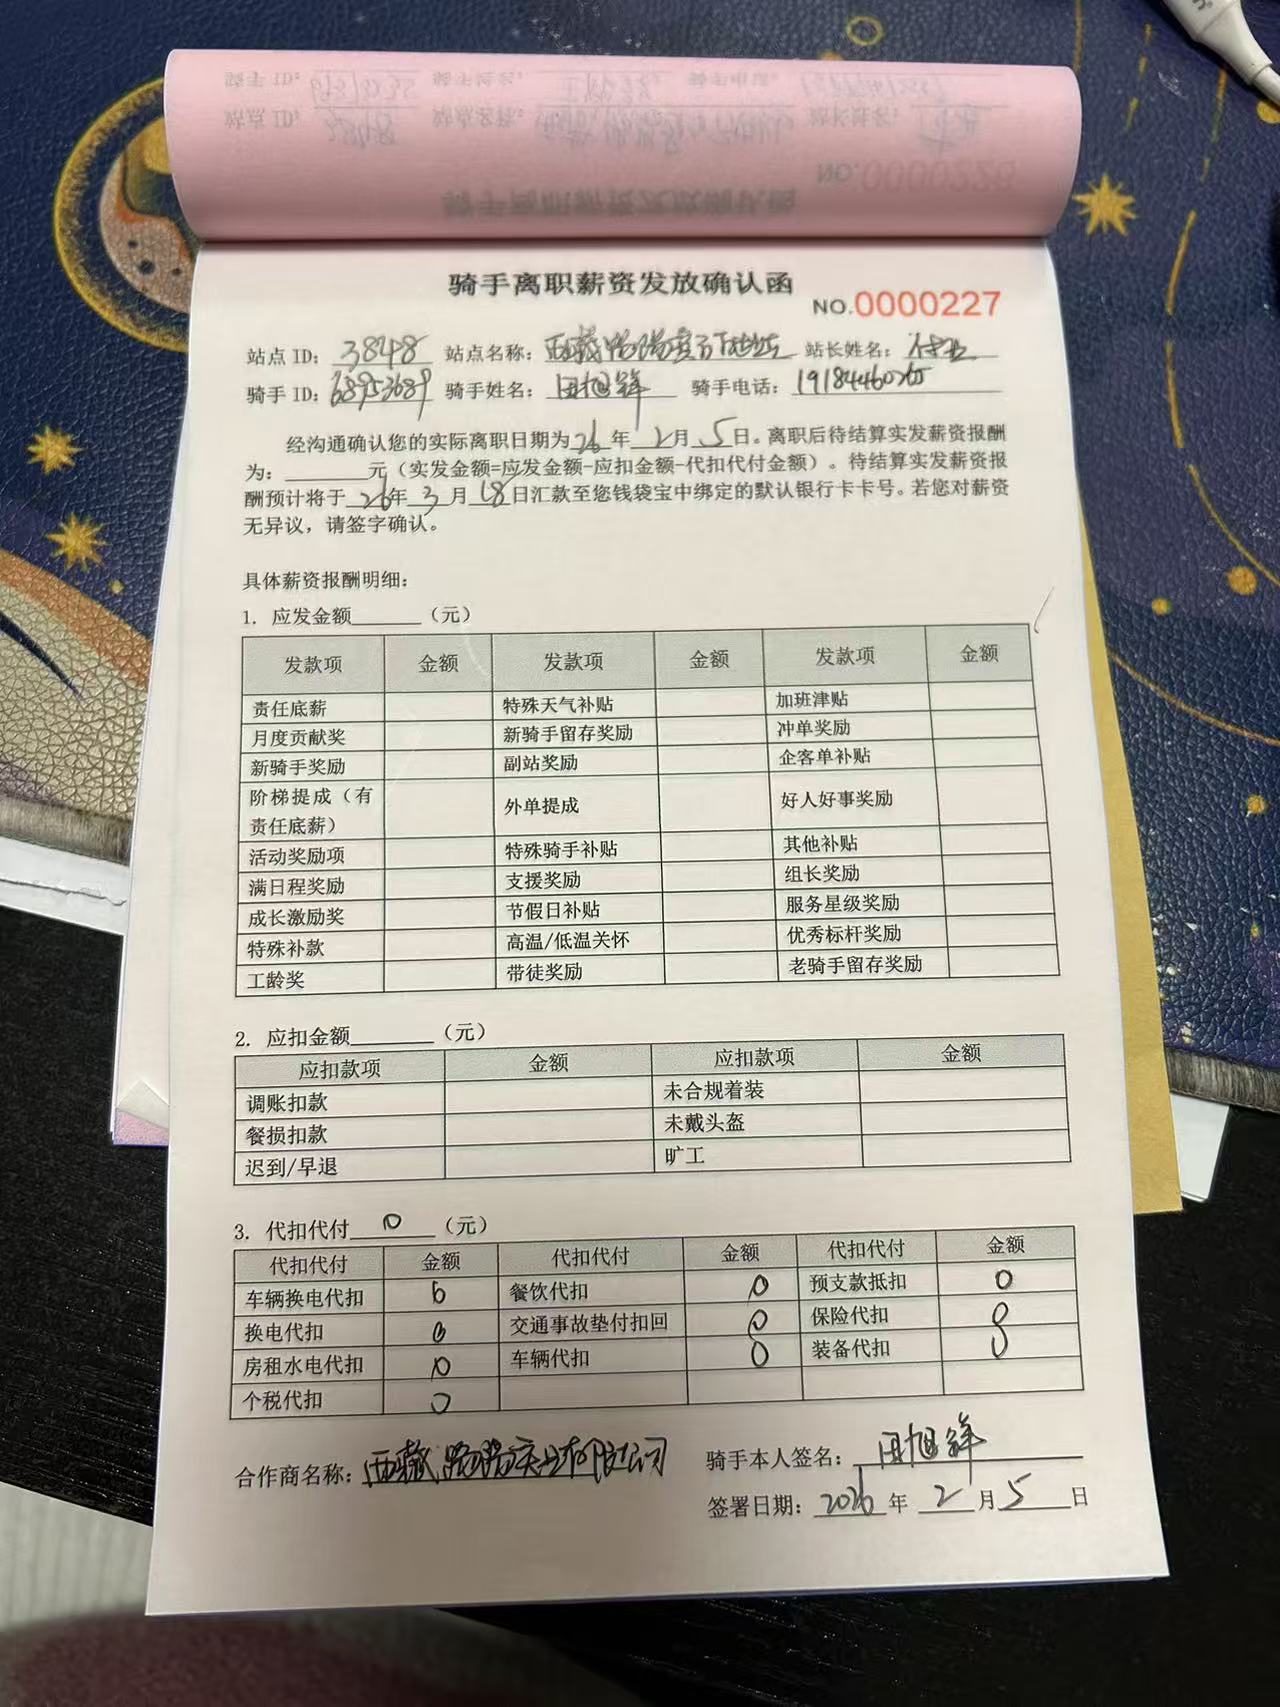 骑手离职薪资发放确认函
NO.0000227
站点 ID: 3848 站点名称: 西藏 站长姓名:
骑手 ID: 68953689 骑手姓名: 田旭锋 骑手电话:
经沟通确认您的实际离职日期为26年2月5日。离职后待结算实发薪资报酬
为:______元（实发金额=应发金额-应扣金额-代扣代付金额）。待结算实发薪资报
酬预计将于26年3月18日汇款至您钱袋宝中绑定的默认银行卡卡号。若您对薪资
无异议，请签字确认。
具体薪资报酬明细:
1. 应发金额______（元）
发款项 金额 发款项 金额 发款项 金额
责任底薪 特殊天气补贴 加班津贴
月度贡献奖 新骑手留存奖励 冲单奖励
新骑手奖励 副站奖励 企客单补贴
阶梯提成（有责任底薪） 外单提成 好人好事奖励
活动奖励项 特殊骑手补贴 其他补贴
满日程奖励 支援奖励 组长奖励
成长激励奖 节假日补贴 服务星级奖励
特殊补款 高温/低温关怀 优秀标杆奖励
工龄奖 带徒奖励 老骑手留存奖励
2. 应扣金额______（元）
应扣款项 金额 应扣款项 金额
调账扣款 未合规着装
餐损扣款 未戴头盔
迟到/早退 旷工
3. 代扣代付 0 （元）
代扣代付 金额 代扣代付 金额 代扣代付 金额
车辆换电代扣 0 餐饮代扣 0 预支款抵扣 0
换电代扣 0 交通事故垫付扣回 0 保险代扣 0
房租水电代扣 0 车辆代扣 0 装备代扣 0
个税代扣 0
合作商名称: 西藏 有限公司 骑手本人签名: 田旭锋
签署日期: 2026 年 2 月 5 日